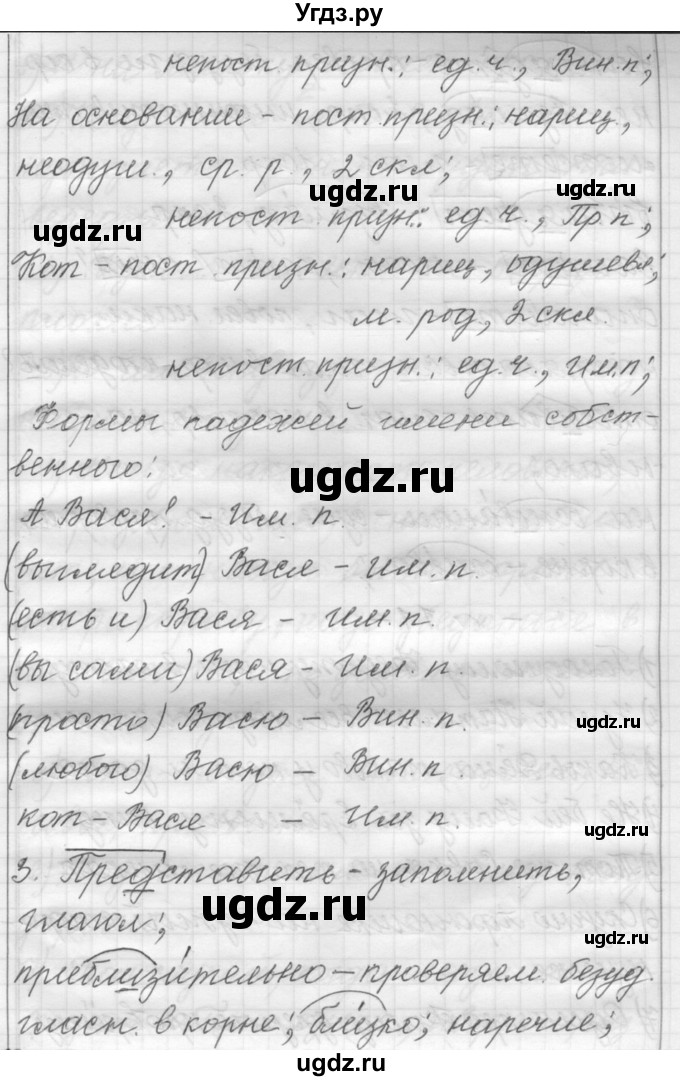 Угдз.ру
непост. призн.: ед. ч., Вин. п.;
На основании – пост. призн.: нариц.,
неодуш., ср. р., 2 скл;
ugdz.ru
непост. призн.: ед. ч., Пр. п.;
ugdz.ru
Кот – пост. призн.: нариц., одушевл;
м. род, 2 скл.
непост. призн.: ед. ч., Им. п;
Формы падежей имени собст-
венного:
ugdz.ru
А Вася! – Им. п.
(выглядит) Вася – Им. п.
(есть и) Вася – Им. п.
(вы сами) Вася – Им. п.
(просто) Васю – Вин. п.
ugdz.ru
(любого) Васю – Вин. п.
кот – Вася – Им. п.
ugdz.ru
3. Представить – запомнить,
глагол;
ugdz.ru
ugdz.ru
приблизительно – проверяем. безуд.
гласн. в корне; близко; наречие;
ugdz.ru